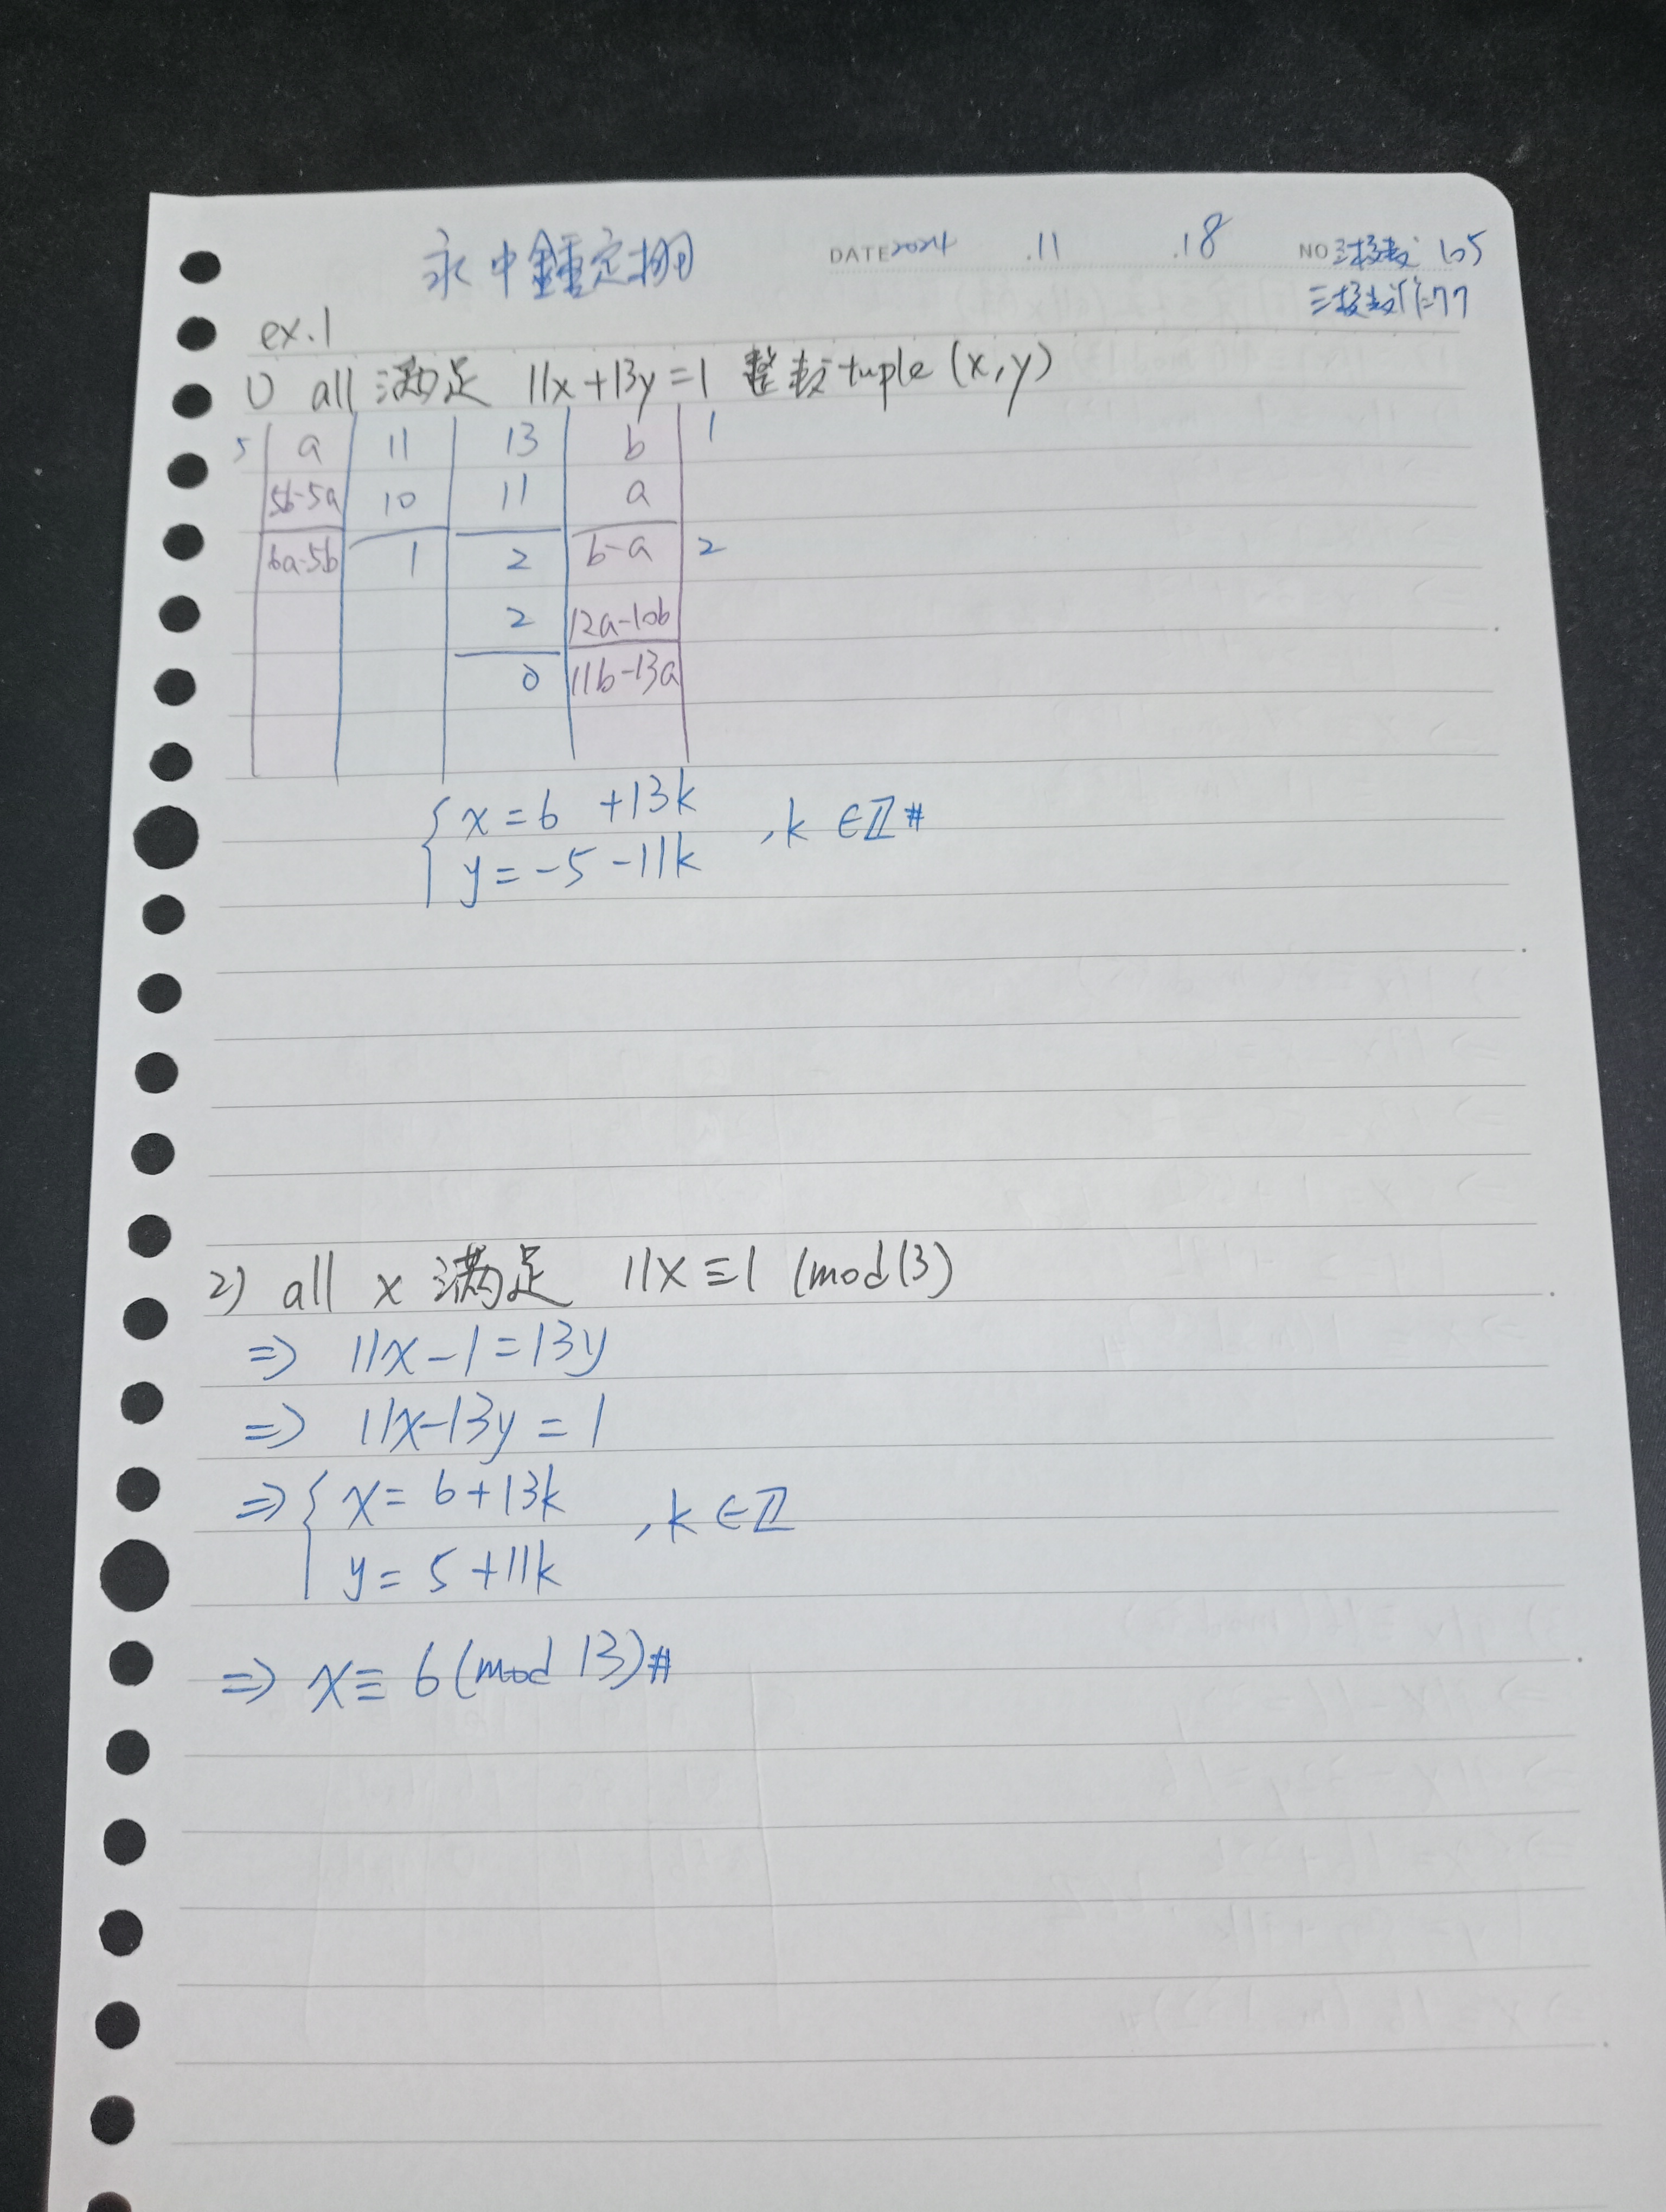 永中鍾定栩 DATE 2024 .11 .18 NO
105
=77
ex.1
1) all 滿足 11x+13y=1 整數tuple (x,y)
5 a 11 13 b 1
5b-5a 10 11 a
6a-5b 1 2 b-a 2
2 12a-10b
0 11b-13a
x=6 +13k
, k ∈ℤ #
y=-5 -11k
2) all x 滿足 11x≡1 (mod 13)
⇒ 11x-1=13y
⇒ 11x-13y=1
⇒ { x=6+13k
, k ∈ℤ
y=5+11k
⇒ x≡6 (mod 13)#